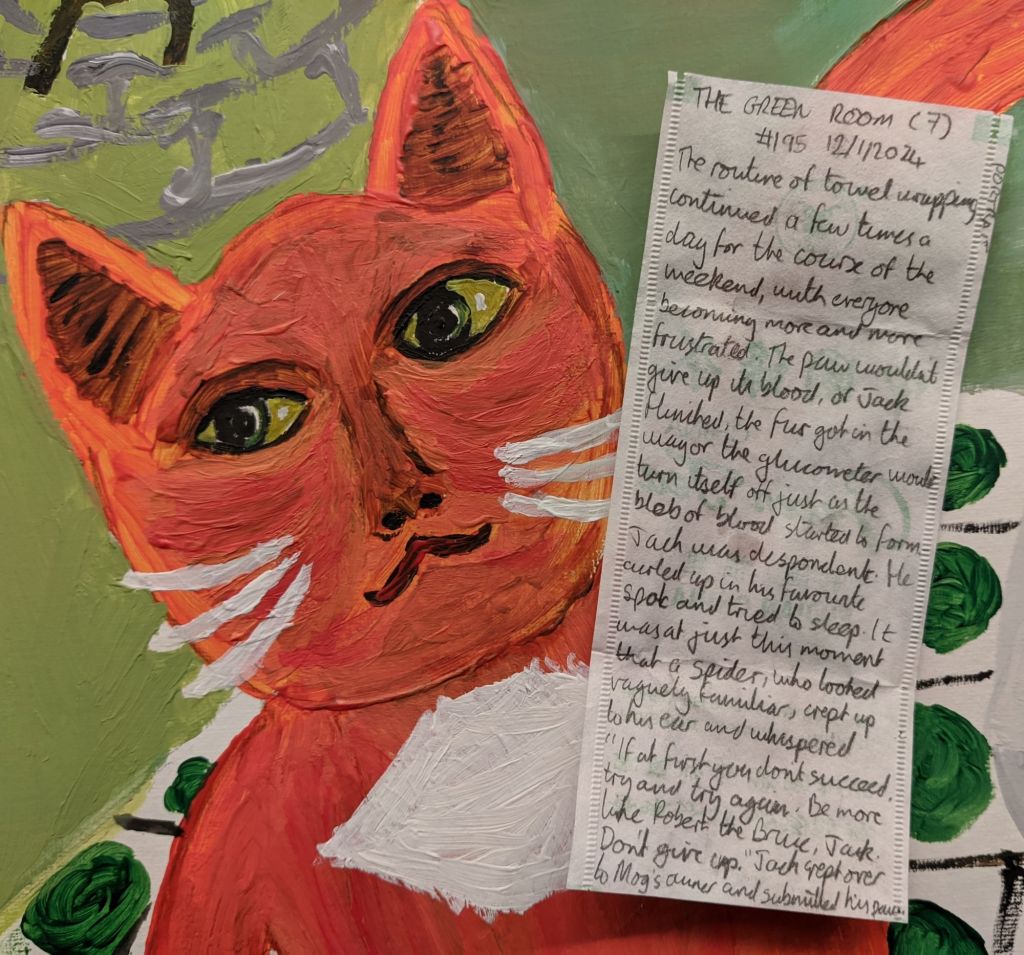 THE GREEN ROOM (7)
#195 12/1/2024
The routine of towel wrapping
continued a few times a
day for the course of the
weekend, with everyone
becoming more and more
frustrated. The paw wouldn't
give up its blood, or Jack
flinched, the fur got in the
way or the glucometer would
turn itself off just as the
blob of blood started to form.
Jack was despondent. He
curled up in his favourite
spot and tried to sleep. It
was at just this moment
that a spider, who looked
vaguely familiar, crept up
to his ear and whispered
"If at first you dont succeed,
try and try again. Be more
like Robert the Bruce, Jack.
Don't give up." Jack crept over
to Mog's owner and submitted his paw.